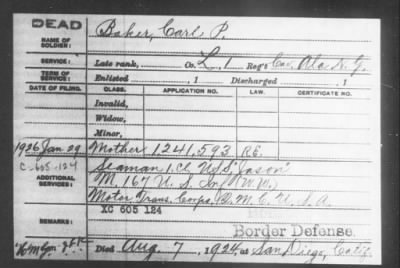 DEAD
NAME OF SOLDIER: Baker, Carl P.
SERVICE: Late rank, Co. L, 1 Reg't Cav. Ala N.G.
TERM OF SERVICE: Enlisted , 1 Discharged , 1
DATE OF FILING. CLASS. APPLICATION NO. LAW. CERTIFICATE NO.
Invalid,
Widow,
Minor,
1926 Jan 29 Mother 1,241,593 RE.
C-605-124
ADDITIONAL SERVICES: Seaman 1 Cl. U.S.S. "Jason"
M, 167 U.S. Inf (W.W.)
Motor Trans. Corps, Q.M.C. U.S.A
XC 605 124
REMARKS: Border Defense.
Died Aug. 7, 1924, at San Diego, Calif.